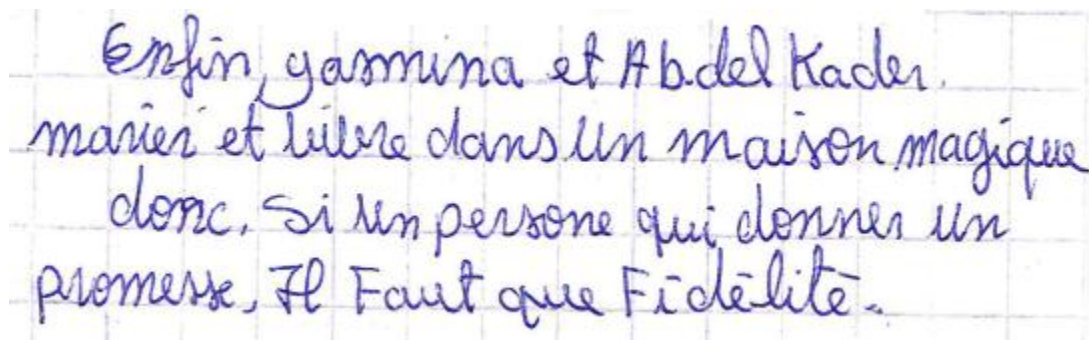 Enfin, yasmina et Abdel Kader.
marier et vivre dans un maison magique
donc. Si un persone qui donner un
promesse, Il Faut que Fidélité.